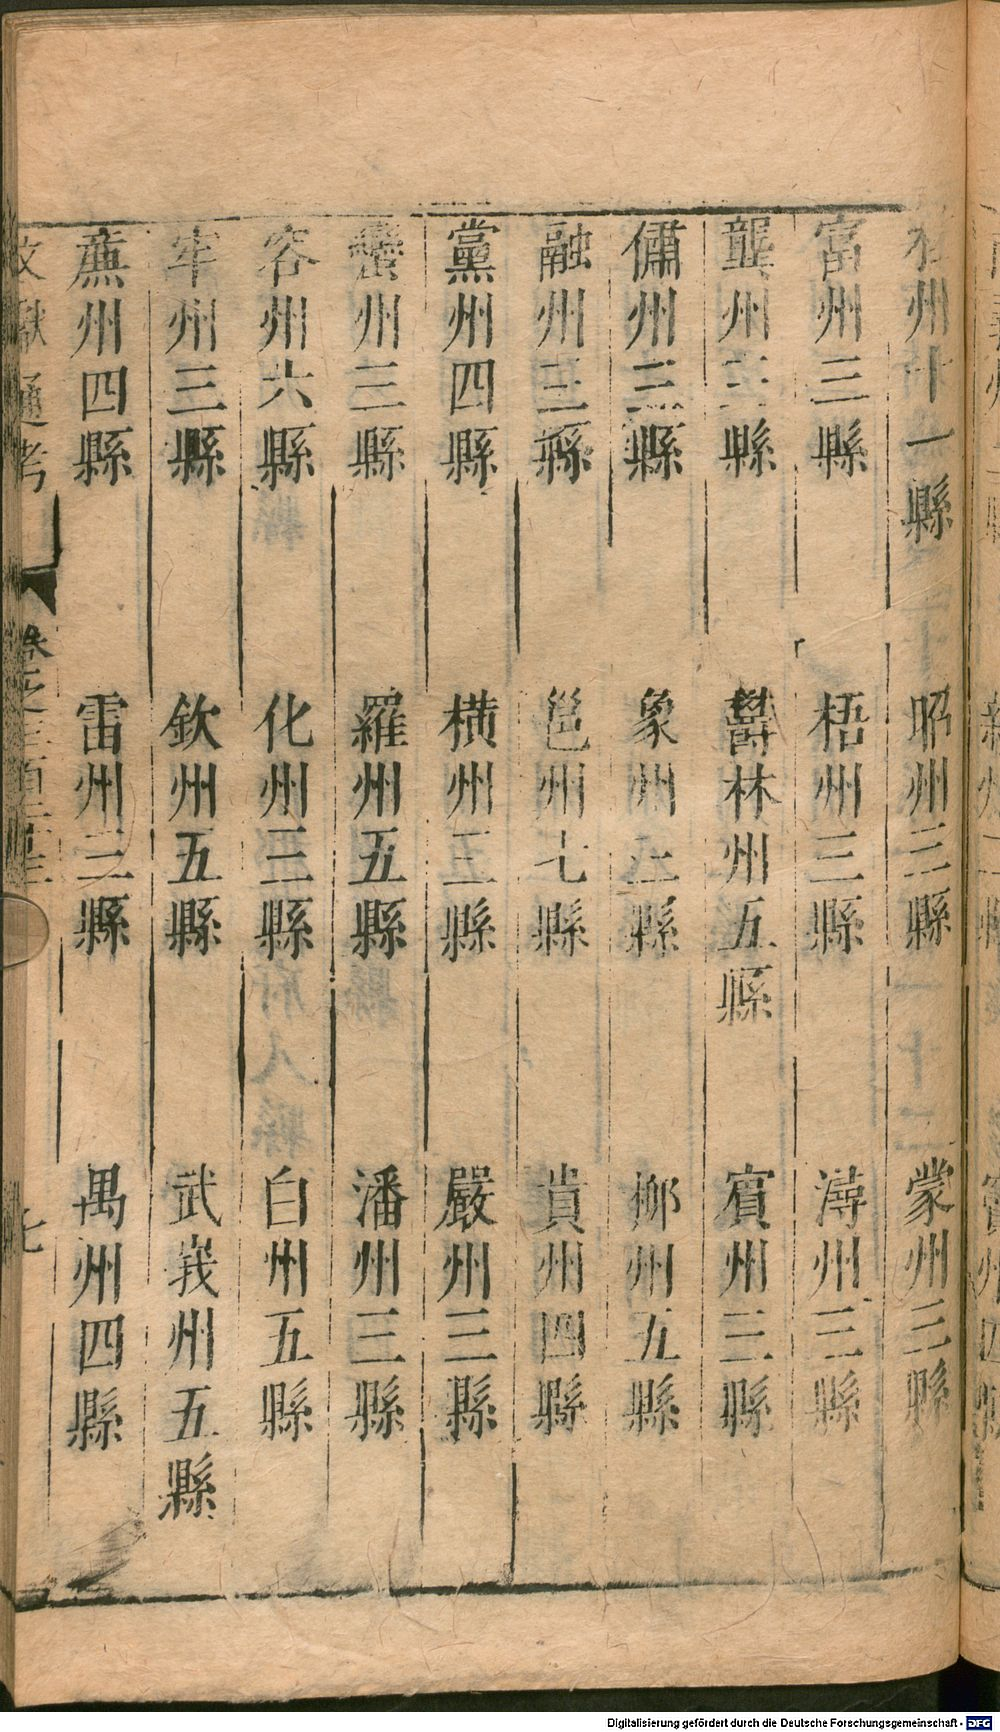 桂州十一縣　昭州三縣　蒙州三縣
富州三縣　梧州三縣　潯州三縣
龔州三縣　鬱林州五縣　賓州三縣
傭州三縣　象州二縣　柳州五縣
融州三縣　邕州七縣　貴州四縣
黨州四縣　橫州三縣　嚴州三縣
蠻州三縣　羅州五縣　潘州三縣
容州六縣　化州三縣　白州五縣
牢州三縣　欽州五縣　武峩州五縣
薦州四縣　雷州三縣　禺州四縣
文獻通考　卷之三百二十三　七
Digitalisierung gefördert durch die Deutsche Forschungsgemeinschaft - DFG